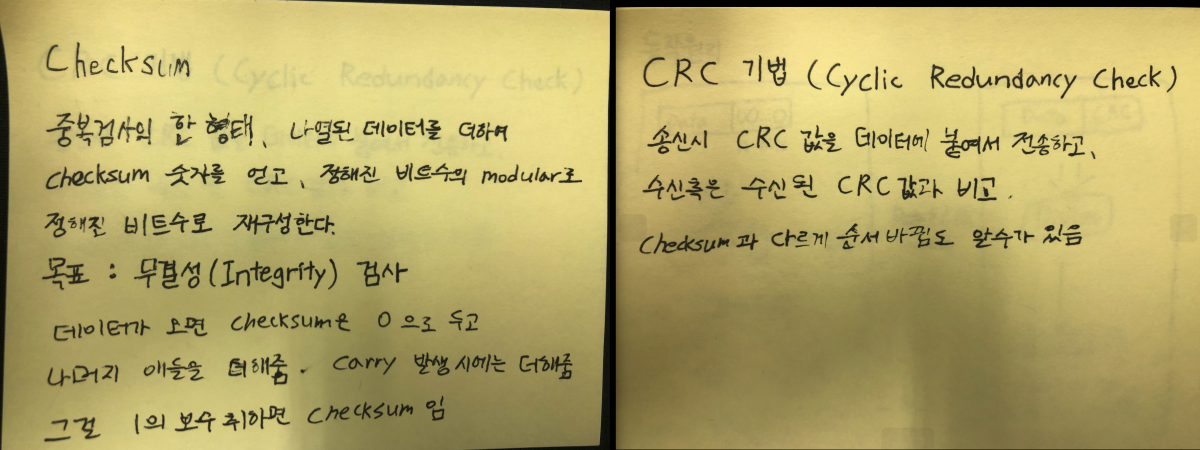 Checksum
중복검사의 한 형태, 나열된 데이터를 더하여
checksum 숫자를 얻고, 정해진 비트수의 modular로
정해진 비트수로 재구성한다.
목표 : 무결성(Integrity) 검사
데이터가 오면 checksum은 0으로 두고
나머지 애들을 더해줌. Carry 발생시에는 더해줌
그걸 1의 보수 취하면 checksum 임
CRC 기법 (Cyclic Redundancy Check)
송신시 CRC 값을 데이터에 붙여서 전송하고,
수신측은 수신된 CRC값과 비교.
checksum과 다르게 순서 바뀜도 알수가 있음